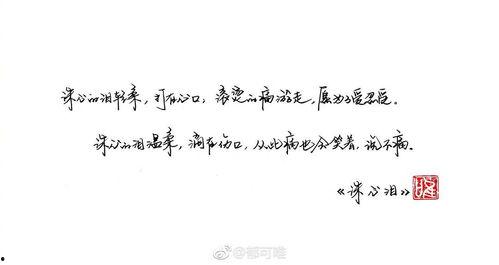 诛心的泪轻柔，打在心口，滚烫的痛游走，愿为了爱忍受。
诛心的泪温柔，滴在伤口，从此痛也会笑着，说不痛。
《诛心泪》
@都可唯